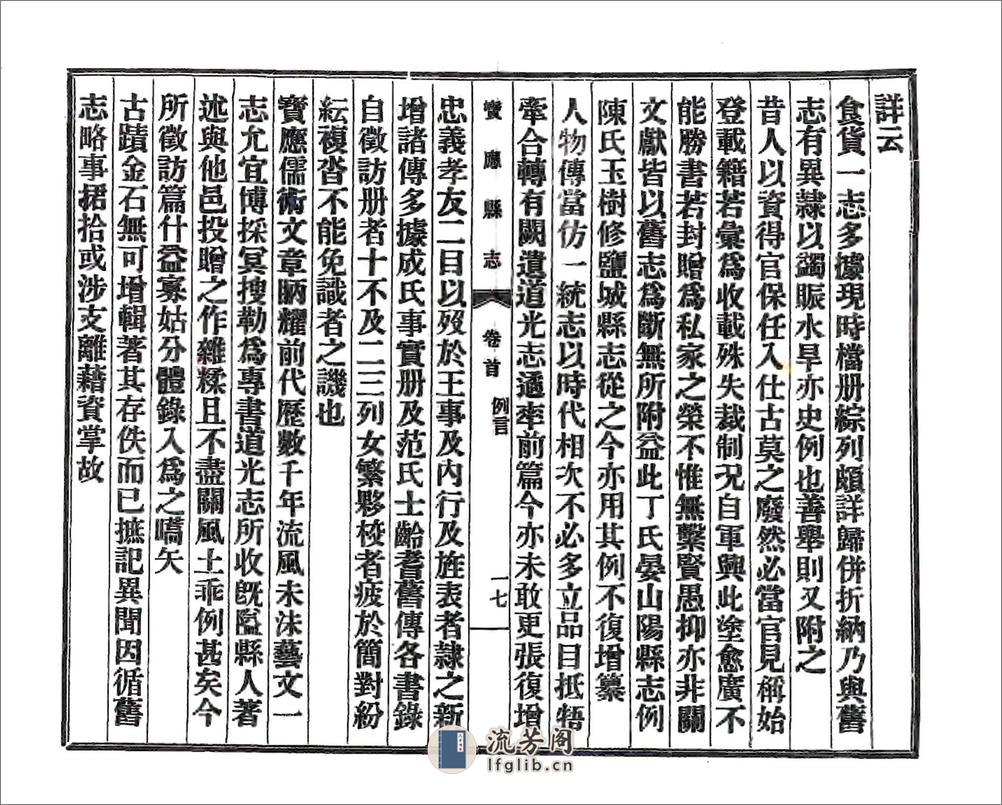 詳云
食貨一志多據現時檔册綜列頗詳歸併折納乃與舊
志有異隸以蠲賑水旱亦史例也善舉則又附之
昔人以資得官保任入仕古莫之廢然必當官見稱始
登載籍若彙爲收載殊失裁制况自軍興此塗愈廣不
能勝書若封贈爲私家之榮不惟無繫賢愚抑亦非關
文獻皆以舊志爲斷無所附益此丁氏晏山陽縣志例
陳氏玉樹修鹽城縣志從之今亦用其例不復增纂
人物傳當仿一統志以時代相次不必多立品目抵牾
牽合轉有闕遺道光志遹率前篇今亦未敢更張復增
寶應縣志 卷首 例言 一七
忠義孝友二目以歿於王事及內行及旌表者隸之新
增諸傳多據成氏事實册及范氏士齡耆舊傳各書錄
自徵訪册者十不及二三列女繁夥校者疲於簡對紛
紜複沓不能免識者之譏也
寶應儒術文章昞耀前代歷數千年流風未沬藝文一
志尤宜博採冥搜勒爲專書道光志所收旣隘縣人著
述與他邑投贈之作雜糅且不盡關風土乖例甚矣今
所徵訪篇什益寡姑分體錄入爲之嚆矢
古蹟金石無可增輯著其存佚而已摭記異聞因循舊
志略事捃拾或涉支離藉資掌故
流芳阁
lfglib.cn